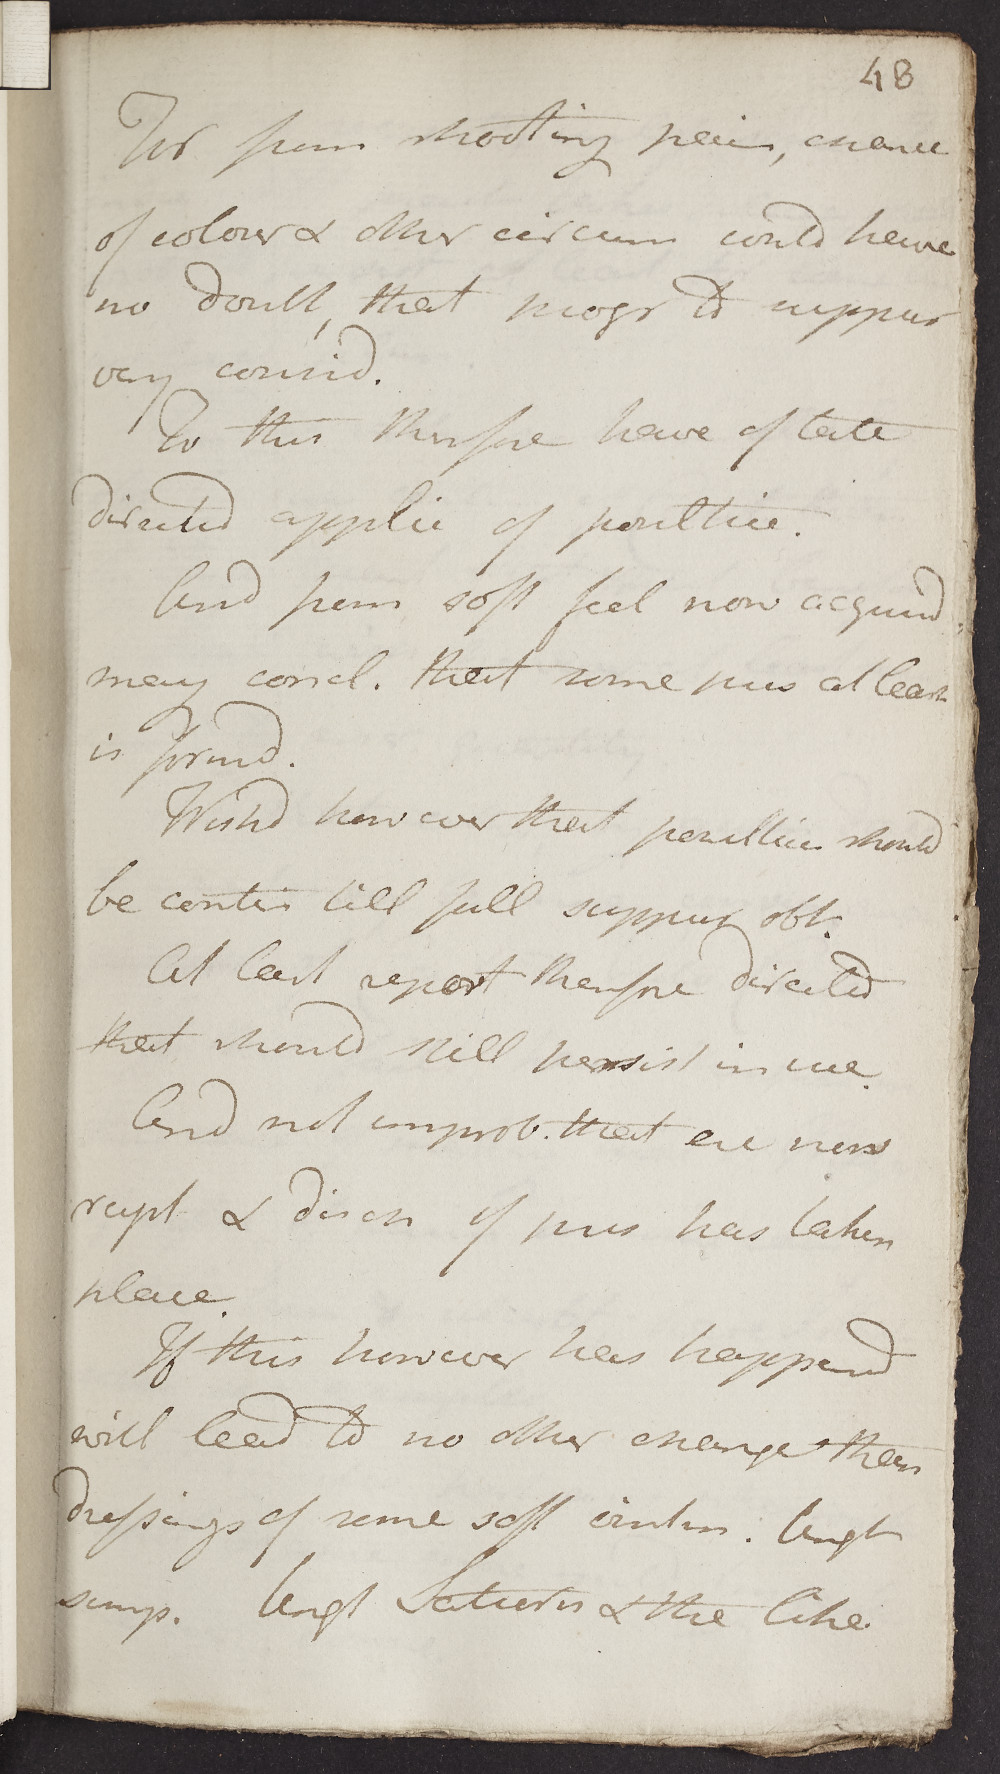 48
For from shooting pain, chance
of colour & other circum could have
no doubt, that progr to suppur
very consid.
To this therefore have of late
directed applic of poultice.
And from soft feel now acquird,
may concl. that some pus at least
is formd.
Wishd however that poultice should
be contin till full suppur obt.
At last report therefore directed
that should still persist in use.
And not improb. that ere now
rupt & disch of pus has taken
place.
If this however has happend
will lead to no other change than
dressings of some soft ointm. Ungt
simp. Ungt Saturn & the like